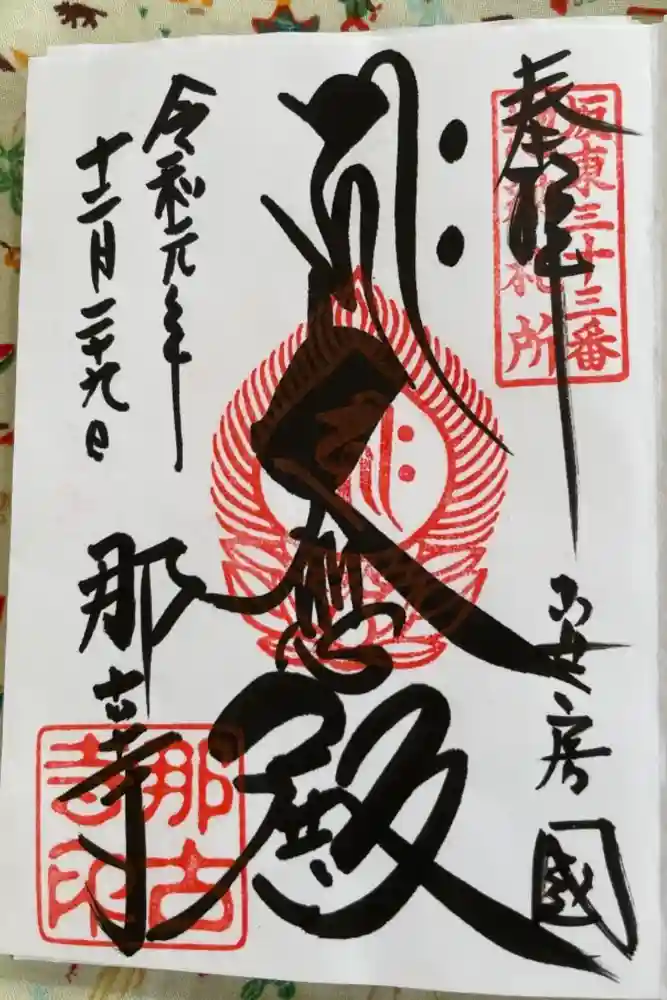 奉拝
坂東三十三番
結願札所
安房國
大悲殿
令和元年
十二月二十九日
那古寺
那古寺印